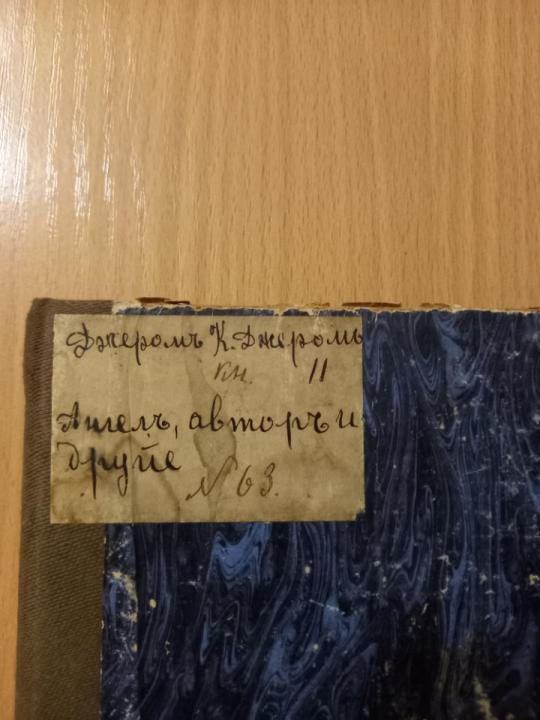 Джеромъ К. Джеромъ
кн. 11
Ангелъ, авторъ и
другіе
№ 63.